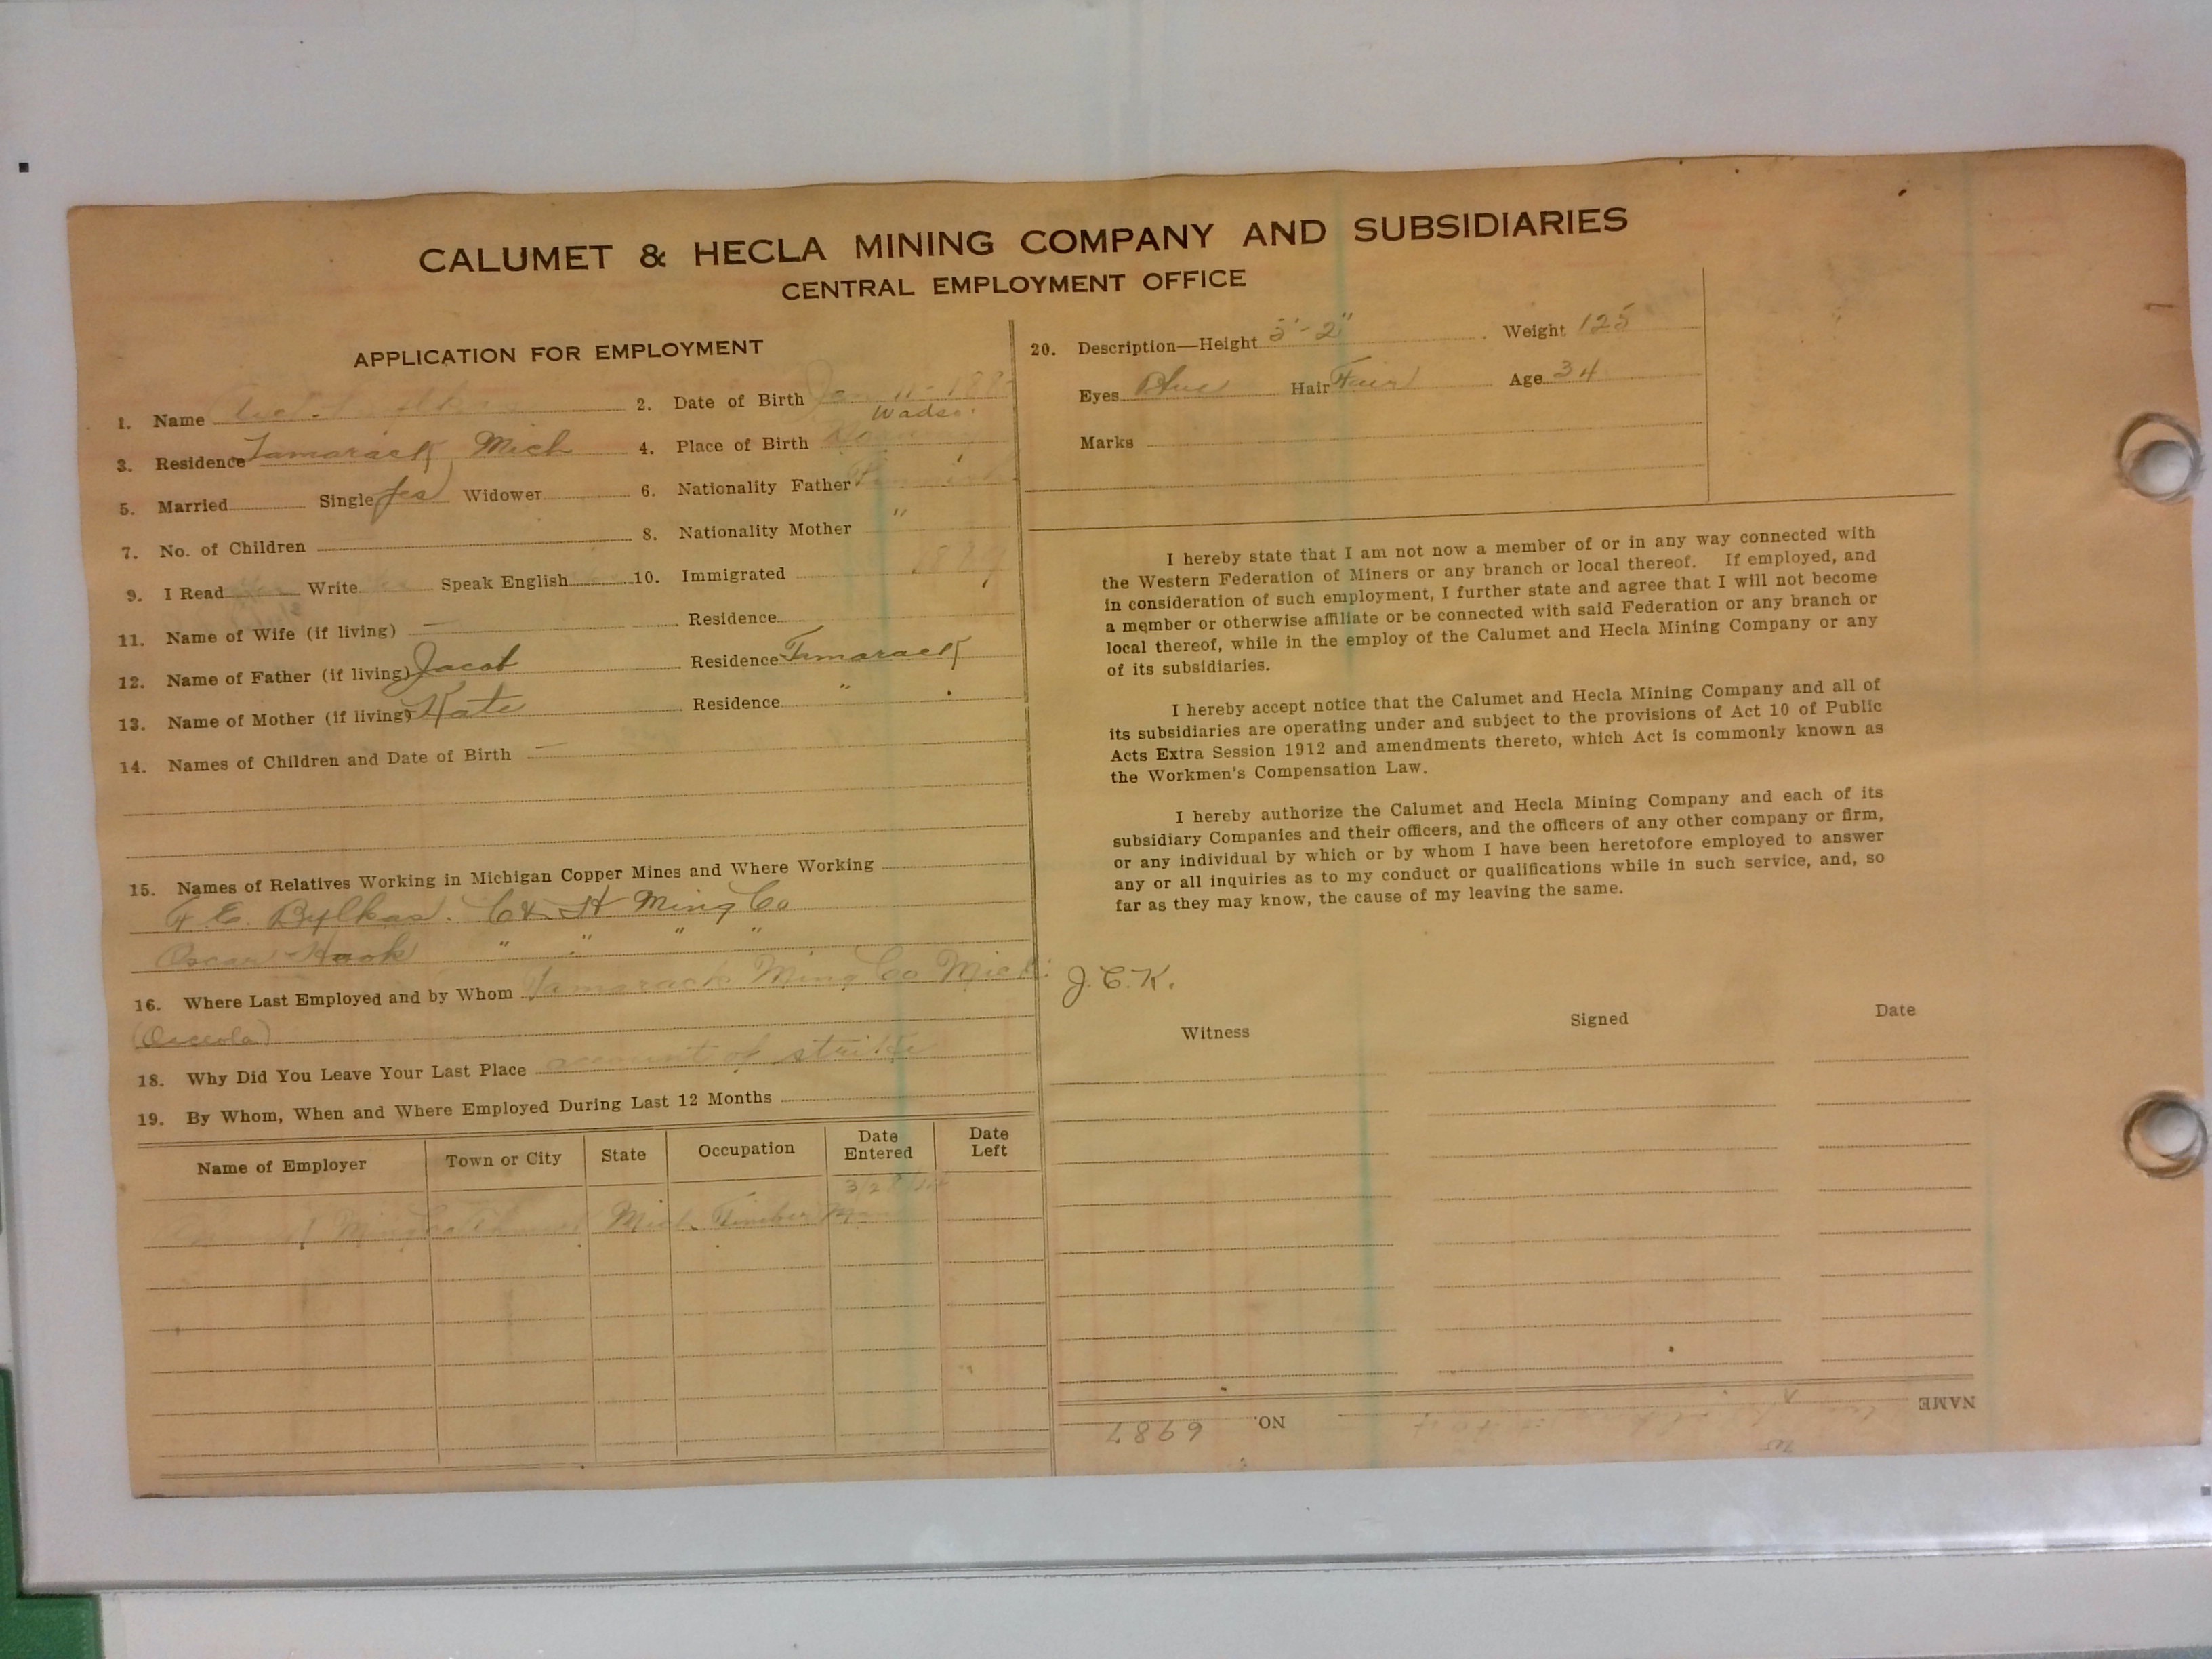 CALUMET & HECLA MINING COMPANY AND SUBSIDIARIES
CENTRAL EMPLOYMENT OFFICE
APPLICATION FOR EMPLOYMENT
1. Name
2. Date of Birth Jan 11-
3. Residence Tamarack Mich
4. Place of Birth Wadso
5. Married Single yes Widower
6. Nationality Father
7. No. of Children
8. Nationality Mother "
9. I Read Write Speak English
10. Immigrated
11. Name of Wife (if living) — Residence
12. Name of Father (if living) Jacob Residence Tamarack
13. Name of Mother (if living) Kate Residence "
14. Names of Children and Date of Birth —
15. Names of Relatives Working in Michigan Copper Mines and Where Working
F. E. Bylkas. C & H Ming Co
Oscar Haok " " " "
16. Where Last Employed and by Whom Tamarack Ming Co Mich.
(Osceola)
18. Why Did You Leave Your Last Place account of strike
19. By Whom, When and Where Employed During Last 12 Months
Name of Employer Town or City State Occupation Date Entered Date Left
Ming Mich. Timber Man
20. Description—Height 5'-2" Weight 125
Eyes Blue Hair Fair Age 34
Marks
I hereby state that I am not now a member of or in any way connected with
the Western Federation of Miners or any branch or local thereof. If employed, and
in consideration of such employment, I further state and agree that I will not become
a member or otherwise affiliate or be connected with said Federation or any branch or
local thereof, while in the employ of the Calumet and Hecla Mining Company or any
of its subsidiaries.
I hereby accept notice that the Calumet and Hecla Mining Company and all of
its subsidiaries are operating under and subject to the provisions of Act 10 of Public
Acts Extra Session 1912 and amendments thereto, which Act is commonly known as
the Workmen's Compensation Law.
I hereby authorize the Calumet and Hecla Mining Company and each of its
subsidiary Companies and their officers, and the officers of any other company or firm,
or any individual by which or by whom I have been heretofore employed to answer
any or all inquiries as to my conduct or qualifications while in such service, and, so
far as they may know, the cause of my leaving the same.
J. C. K.
Witness Signed Date
NAME
NO. 6987